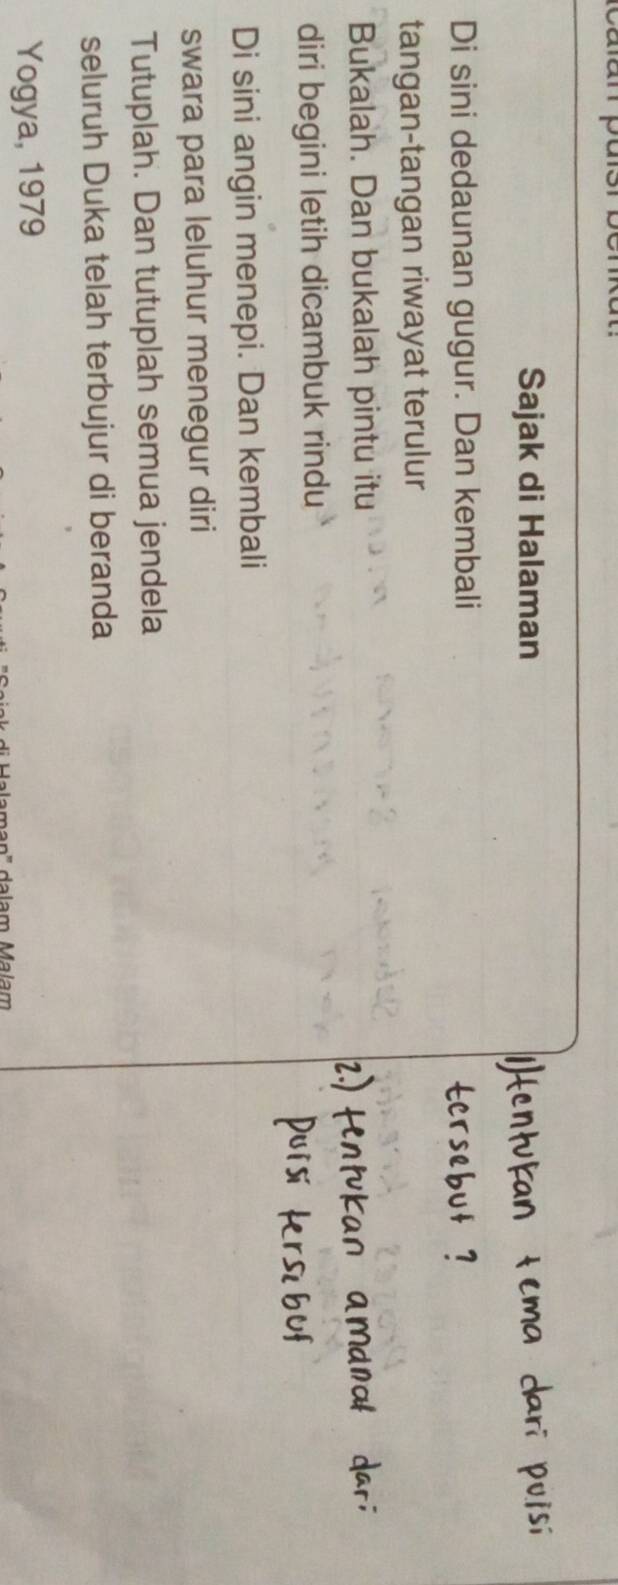 puisi berikut!
Sajak di Halaman
Di sini dedaunan gugur. Dan kembali
tangan-tangan riwayat terulur
Bukalah. Dan bukalah pintu itu
diri begini letih dicambuk rindu
Di sini angin menepi. Dan kembali
swara para leluhur menegur diri
Tutuplah. Dan tutuplah semua jendela
seluruh Duka telah terbujur di beranda
Yogya, 1979
"Sajak di Halaman" dalam Malam
1) tentukan tema dari puisi
tersebut?
2.) tentukan amanat dari
puisi tersebut